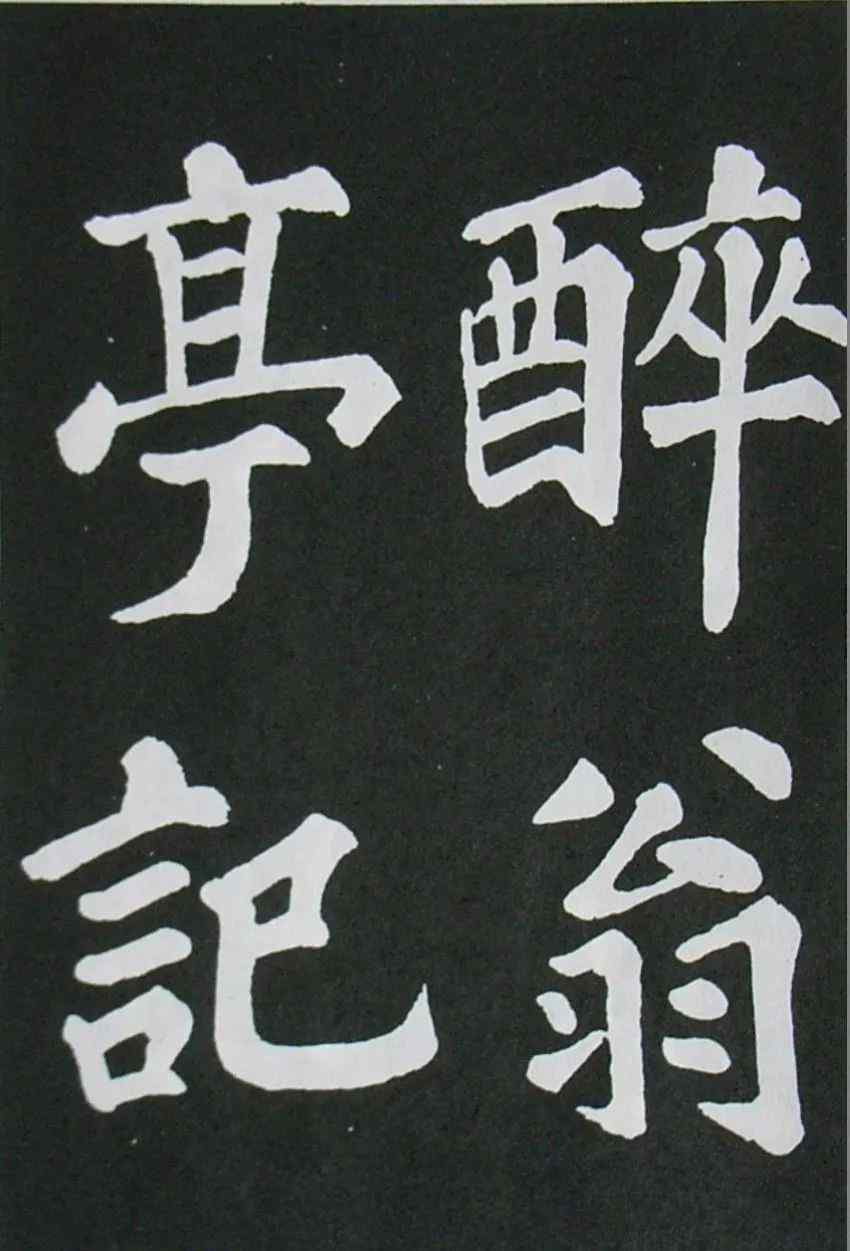 醉翁
亭記